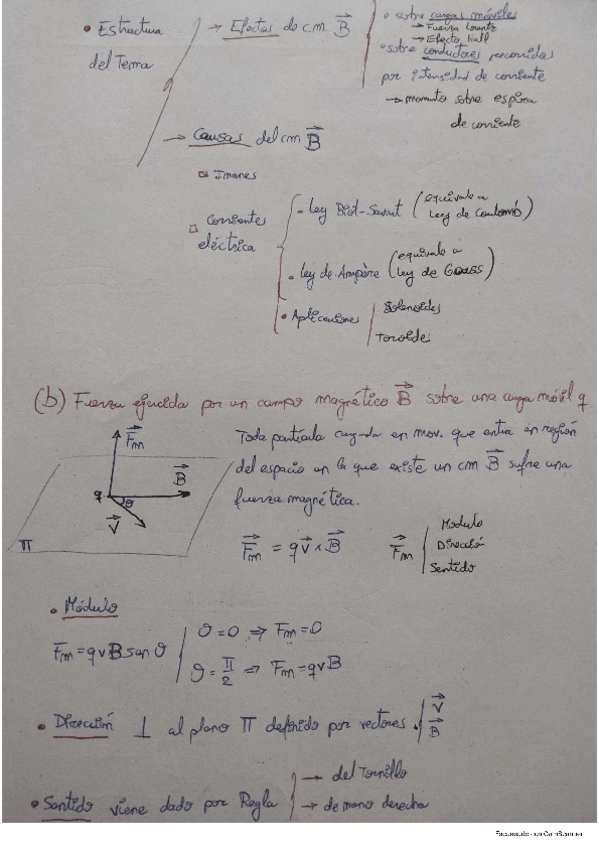 • Estructura del Tema
→ Efectos de c.m. B⃗
• sobre cargas móviles
→ Fuerza Lorentz
→ Efecto Hall
• sobre conductores recorridos
por intensidad de corriente
→ momento sobre espira
de corriente
→ Causas del cm B⃗
□ Imanes
□ Corriente eléctrica
• Ley Biot-Savart (equivale a Ley de Coulomb)
• Ley de Ampère (equivale a Ley de Gauss)
• Aplicaciones
Solenoides
Toroide
(b) Fuerza ejercida por un campo magnético B⃗ sobre una carga móvil q
F⃗m
B⃗
q
θ
V⃗
π
Toda partícula cargada en mov. que entra en región
del espacio en la que existe un cm B⃗ sufre una
fuerza magnética.
F⃗m = q v⃗ × B⃗
F⃗m
Modulo
Dirección
Sentido
• Módulo
Fm = q v B sen θ
θ = 0 ⇒ Fm = 0
θ = π/2 ⇒ Fm = q v B
• Dirección ⊥ al plano π definido por vectores
V⃗
B⃗
• Sentido viene dado por Regla
→ del Tornillo
→ de mano derecha
Escaneado con CamScanner